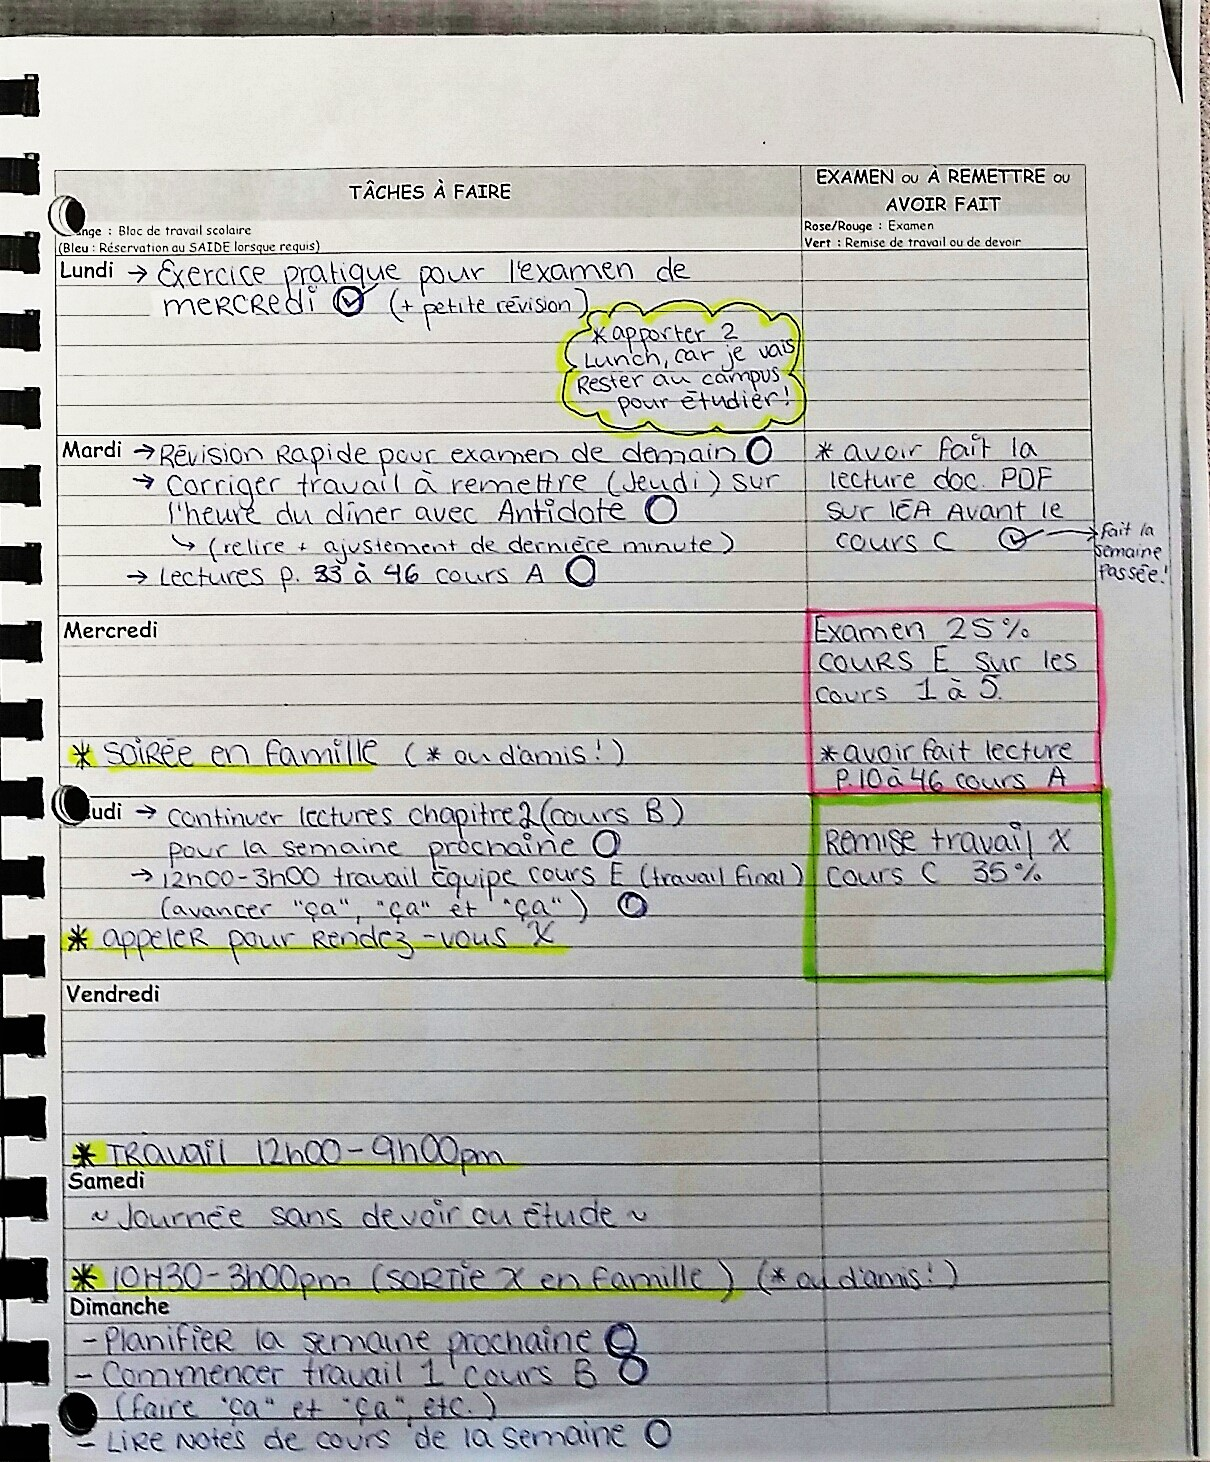 TÂCHES À FAIRE
EXAMEN ou À REMETTRE ou
AVOIR FAIT
nge : Bloc de travail scolaire
(Bleu : Réservation au SAIDE lorsque requis)
Rose/Rouge : Examen
Vert : Remise de travail ou de devoir
Lundi → Exercice pratique pour l'examen de
mercredi (+ petite révision)
* apporter 2
Lunch, car je vais
Rester au campus
pour étudier!
Mardi → Révision Rapide pour examen de demain
→ Corriger travail à remettre (Jeudi) sur
l'heure du dîner avec Antidote
↳ (relire + ajustement de dernière minute)
→ Lectures p. 33 à 46 cours A
* avoir fait la
lecture doc. PDF
sur IÉA Avant le
cours C → Fait la
semaine
passée!
Mercredi
* Soirée en famille (* ou d'amis!)
Examen 25%
cours E sur les
cours 1 à 5.
* avoir fait lecture
P.10 à 46 cours A
udi → continuer lectures chapitre 2 (cours B)
pour la semaine prochaine
→ 12h00-3h00 travail Équipe cours E (travail final)
(avancer "ça", "ça" et "ça")
* appeler pour Rendez-vous X
Remise travail X
cours C 35%
Vendredi
* Travail 12h00-9h00pm
Samedi
~ Journée sans devoir ou étude ~
* 10H30-3h00pm (sortie X en famille) (* ou d'amis!)
Dimanche
- Planifier la semaine prochaine
- Commencer travail 1 cours B
(faire "ça" et "ça", etc.)
- Lire Notes de cours de la semaine